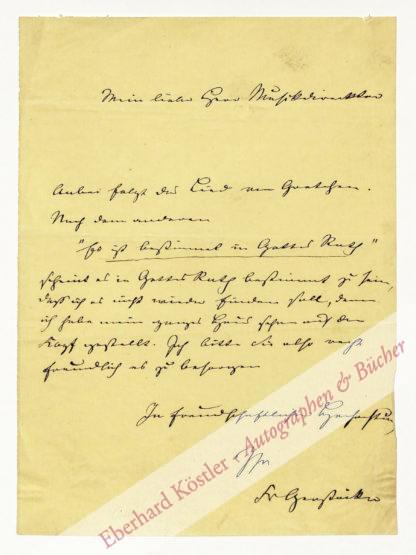 Mein lieber Herr Musikdirecktor
Anbei folgt das Lied von Gretchen.
Nach dem anderen
"Es ist bestimmt in Gottes Rath"
scheint es in Gottes Rath bestimmt zu sein,
daß ich es nicht wieder finden soll, denn
ich habe mein ganzes Haus schon auf den
Kopf gestellt. Ich bitte Sie also recht
freundlich es zu besorgen
In freundschaftlicher Hochachtung
Ihr
Fr Gerstäcker
Eberhard Köstler - Autographen & Bücher